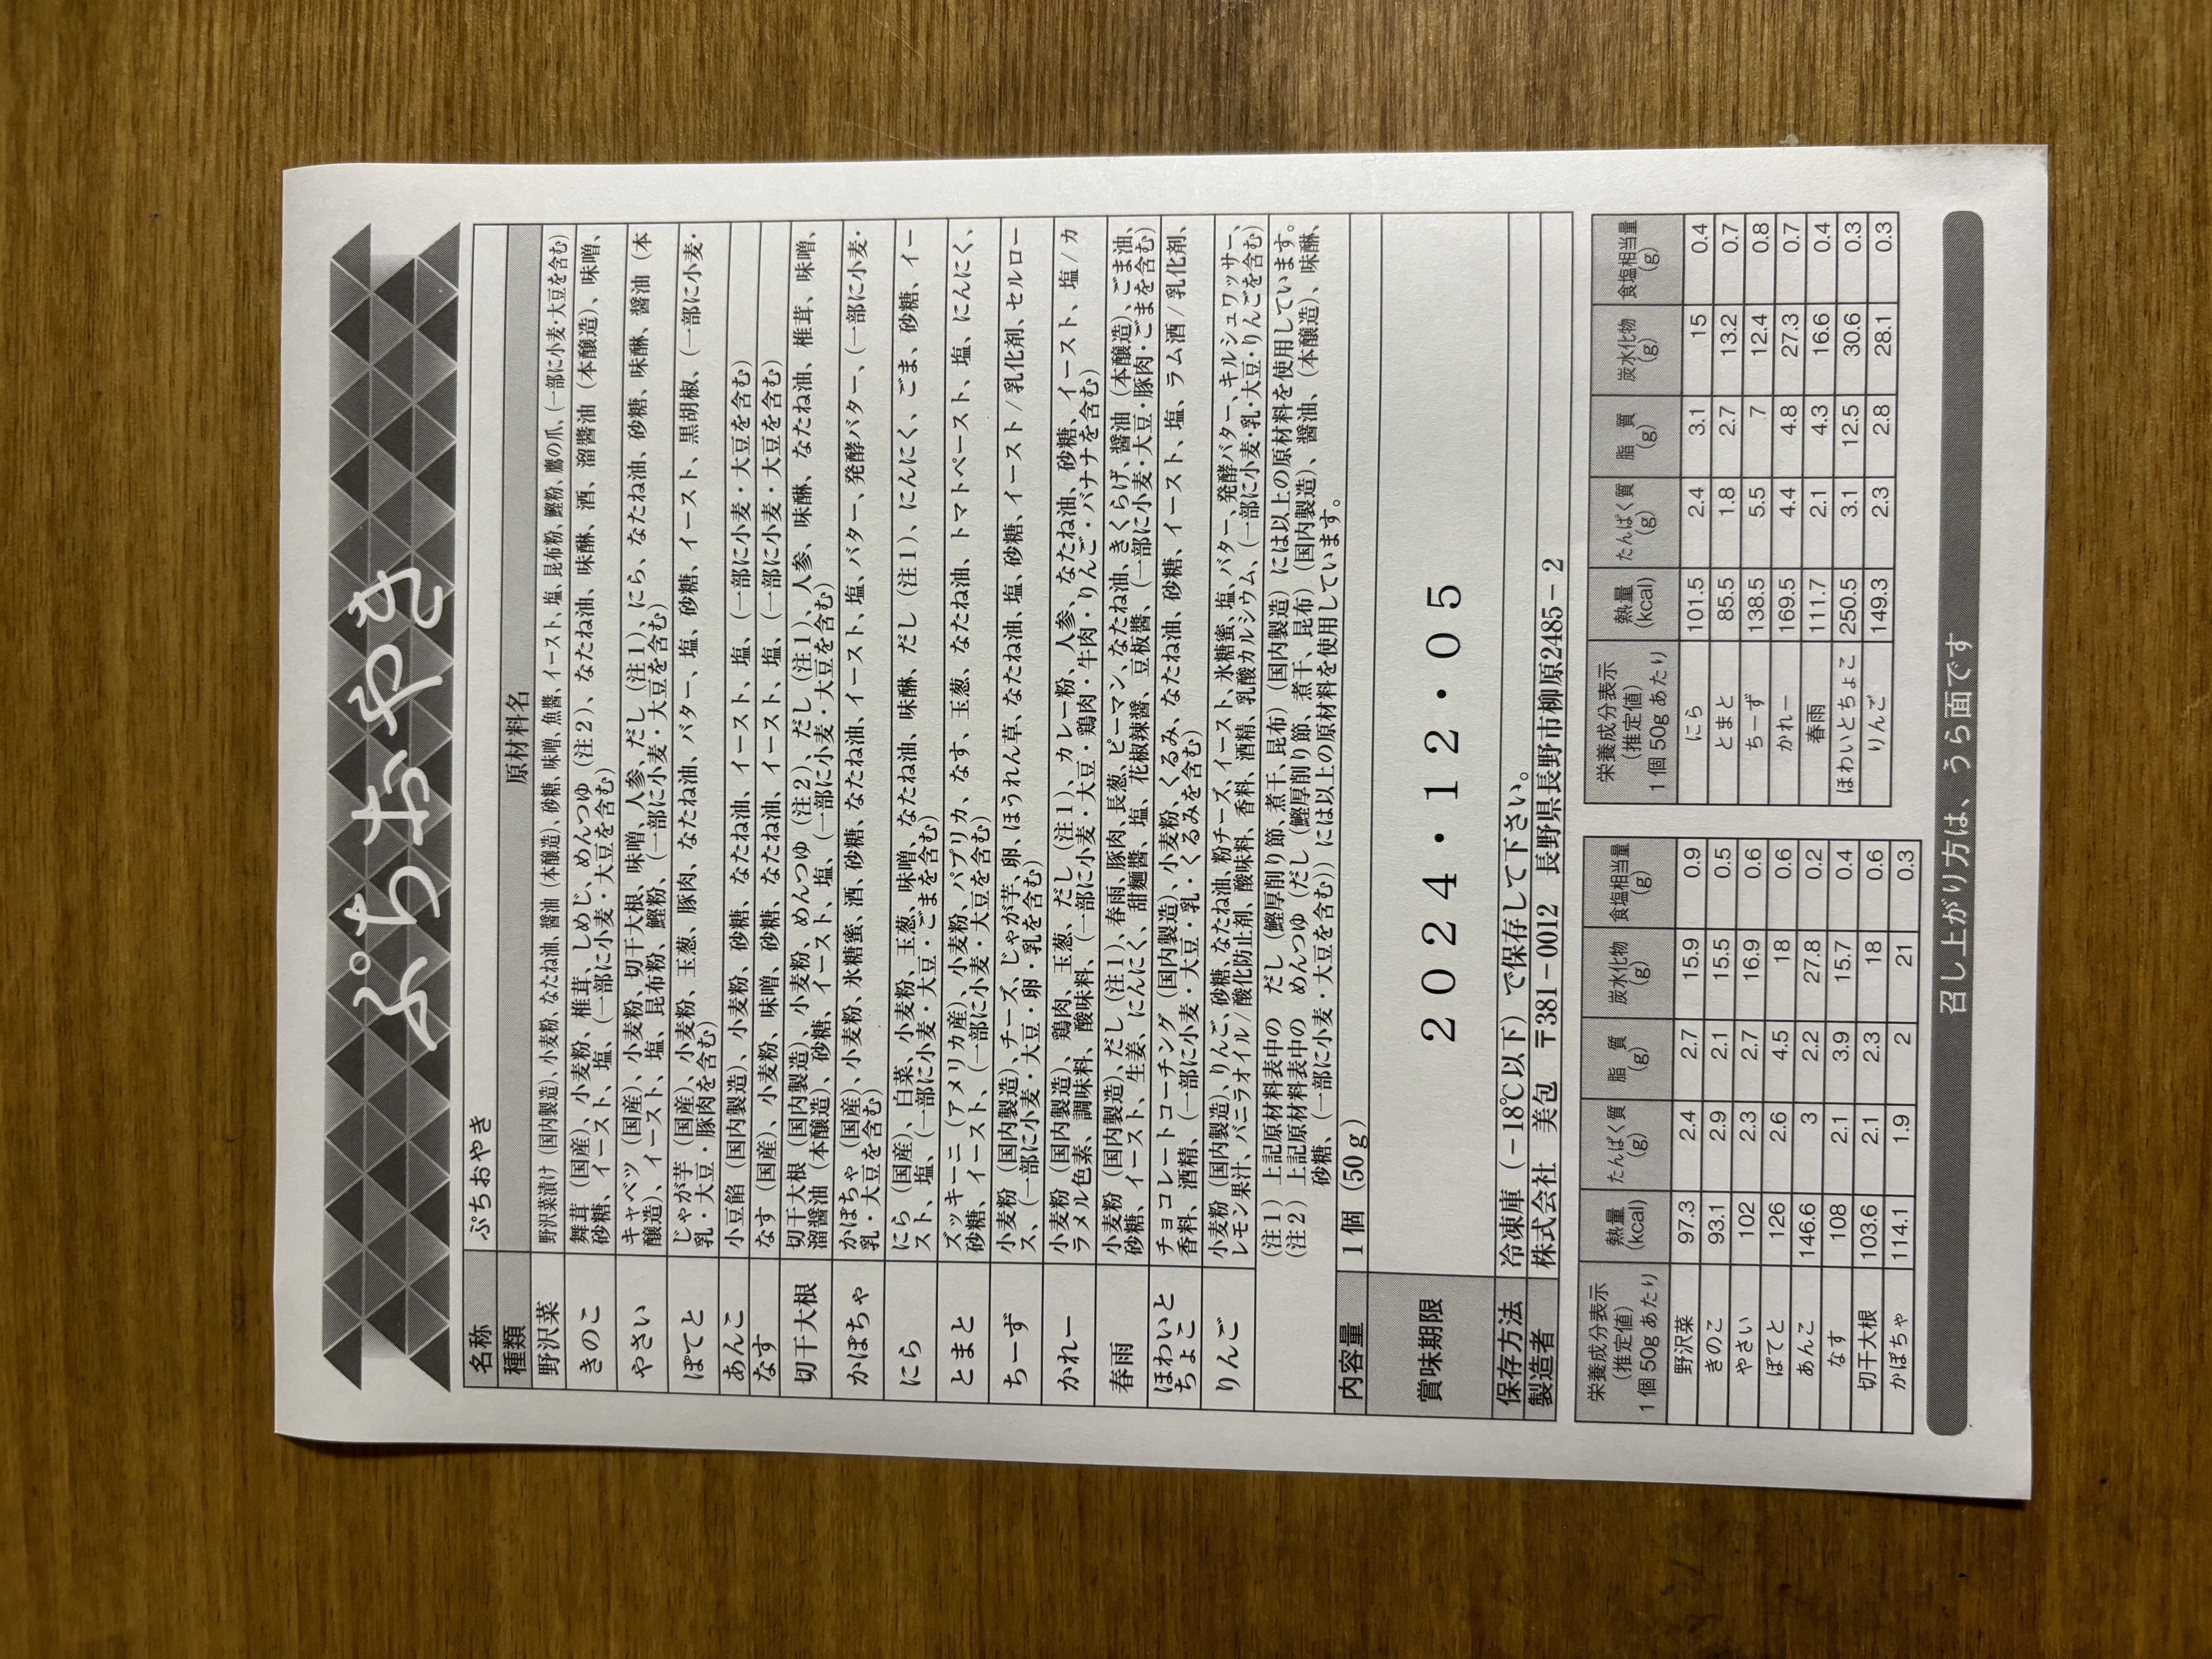 ぷちおやき
名称 ぷちおやき
種類 原材料名
野沢菜 野沢菜漬け（国内製造）、小麦粉、なたね油、醤油（本醸造）、砂糖、味噌、魚醤、イースト、塩、昆布粉、鰹粉、鷹の爪、（一部に小麦・大豆を含む）
きのこ 舞茸（国産）、小麦粉、椎茸、しめじ、めんつゆ（注２）、なたね油、味醂、酒、溜醤油（本醸造）、味噌、
砂糖、イースト、塩、（一部に小麦・大豆を含む）
やさい キャベツ（国産）、小麦粉、切干大根、味噌、人参、だし（注１）、にら、なたね油、砂糖、味醂、醤油（本
醸造）、イースト、塩、昆布粉、鰹粉、（一部に小麦・大豆を含む）
ぽてと じゃが芋（国産）、小麦粉、玉葱、豚肉、なたね油、バター、塩、砂糖、イースト、黒胡椒、（一部に小麦・
乳・大豆・豚肉を含む）
あんこ 小豆餡（国内製造）、小麦粉、砂糖、なたね油、イースト、塩、（一部に小麦・大豆を含む）
なす なす（国産）、小麦粉、味噌、砂糖、なたね油、イースト、塩、（一部に小麦・大豆を含む）
切干大根 切干大根（国内製造）、小麦粉、めんつゆ（注２）、だし（注１）、人参、味醂、なたね油、椎茸、味噌、
溜醤油（本醸造）、砂糖、イースト、塩、（一部に小麦・大豆を含む）
かぼちゃ かぼちゃ（国産）、小麦粉、氷糖蜜、酒、砂糖、なたね油、イースト、塩、バター、発酵バター、（一部に小麦・
乳・大豆を含む）
にら にら（国産）、白菜、小麦粉、玉葱、味噌、なたね油、味醂、だし（注１）、にんにく、ごま、砂糖、イー
スト、塩、（一部に小麦・大豆・ごまを含む）
とまと ズッキーニ（アメリカ産）、小麦粉、パプリカ、なす、玉葱、なたね油、トマトペースト、塩、にんにく、
砂糖、イースト、（一部に小麦・大豆を含む）
ちーず 小麦粉（国内製造）、チーズ、じゃが芋、卵、ほうれん草、なたね油、塩、砂糖、イースト/乳化剤、セルロー
ス、（一部に小麦・大豆・卵・乳を含む）
かれー 小麦粉（国内製造）、鶏肉、玉葱、だし（注１）、カレー粉、人参、なたね油、砂糖、イースト、塩/カ
ラメル色素、調味料、酸味料、（一部に小麦・大豆・鶏肉・牛肉・りんご・バナナを含む）
春雨 小麦粉（国内製造）、だし（注１）、春雨、豚肉、長葱、ピーマン、なたね油、きくらげ、醤油（本醸造）、ごま油、
砂糖、イースト、生姜、にんにく、甜麺醤、塩、花椒辣醤、豆板醤、（一部に小麦・大豆・豚肉・ごまを含む）
ほわいと
ちょこ チョコレートコーチング（国内製造）、小麦粉、くるみ、なたね油、砂糖、イースト、塩、ラム酒/乳化剤、
香料、酒精、（一部に小麦・大豆・乳・くるみを含む）
りんご 小麦粉（国内製造）、りんご、砂糖、なたね油、粉チーズ、イースト、氷糖蜜、塩、バター、発酵バター、キルシュワッサー、
レモン果汁、バニラオイル/酸化防止剤、酸味料、香料、酒精、乳酸カルシウム、（一部に小麦・乳・大豆・りんごを含む）
（注１）上記原材料表中の だし（鰹厚削り節、煮干、昆布）（国内製造）には以上の原材料を使用しています。
（注２）上記原材料表中の めんつゆ（だし（鰹厚削り節、煮干、昆布）（国内製造）、醤油、（本醸造）、味醂、
砂糖、（一部に小麦・大豆を含む））には以上の原材料を使用しています。
内容量 １個（50ｇ）
賞味期限 2024・12・05
保存方法 冷凍庫（－18℃以下）で保存して下さい。
製造者 株式会社 美包 〒381－0012 長野県長野市柳原2485－2
栄養成分表示（推定値）1個50gあたり 熱量(kcal) たんぱく質(g) 脂質(g) 炭水化物(g) 食塩相当量(g)
野沢菜 97.3 2.4 2.7 15.9 0.9
きのこ 93.1 2.9 2.1 15.5 0.5
やさい 102 2.3 2.7 16.9 0.6
ぽてと 126 2.6 4.5 18 0.6
あんこ 146.6 3 2.2 27.8 0.2
なす 108 2.1 3.9 15.7 0.4
切干大根 103.6 2.1 2.3 18 0.6
かぼちゃ 114.1 1.9 2 21 0.3
栄養成分表示（推定値）1個50gあたり 熱量(kcal) たんぱく質(g) 脂質(g) 炭水化物(g) 食塩相当量(g)
にら 101.5 2.4 3.1 15 0.4
とまと 85.5 1.8 2.7 13.2 0.7
ちーず 138.5 5.5 7 12.4 0.8
かれー 169.5 4.4 4.8 27.3 0.7
春雨 111.7 2.1 4.3 16.6 0.4
ほわいとちょこ 250.5 3.1 12.5 30.6 0.3
りんご 149.3 2.3 2.8 28.1 0.3
召し上がり方は、うら面です